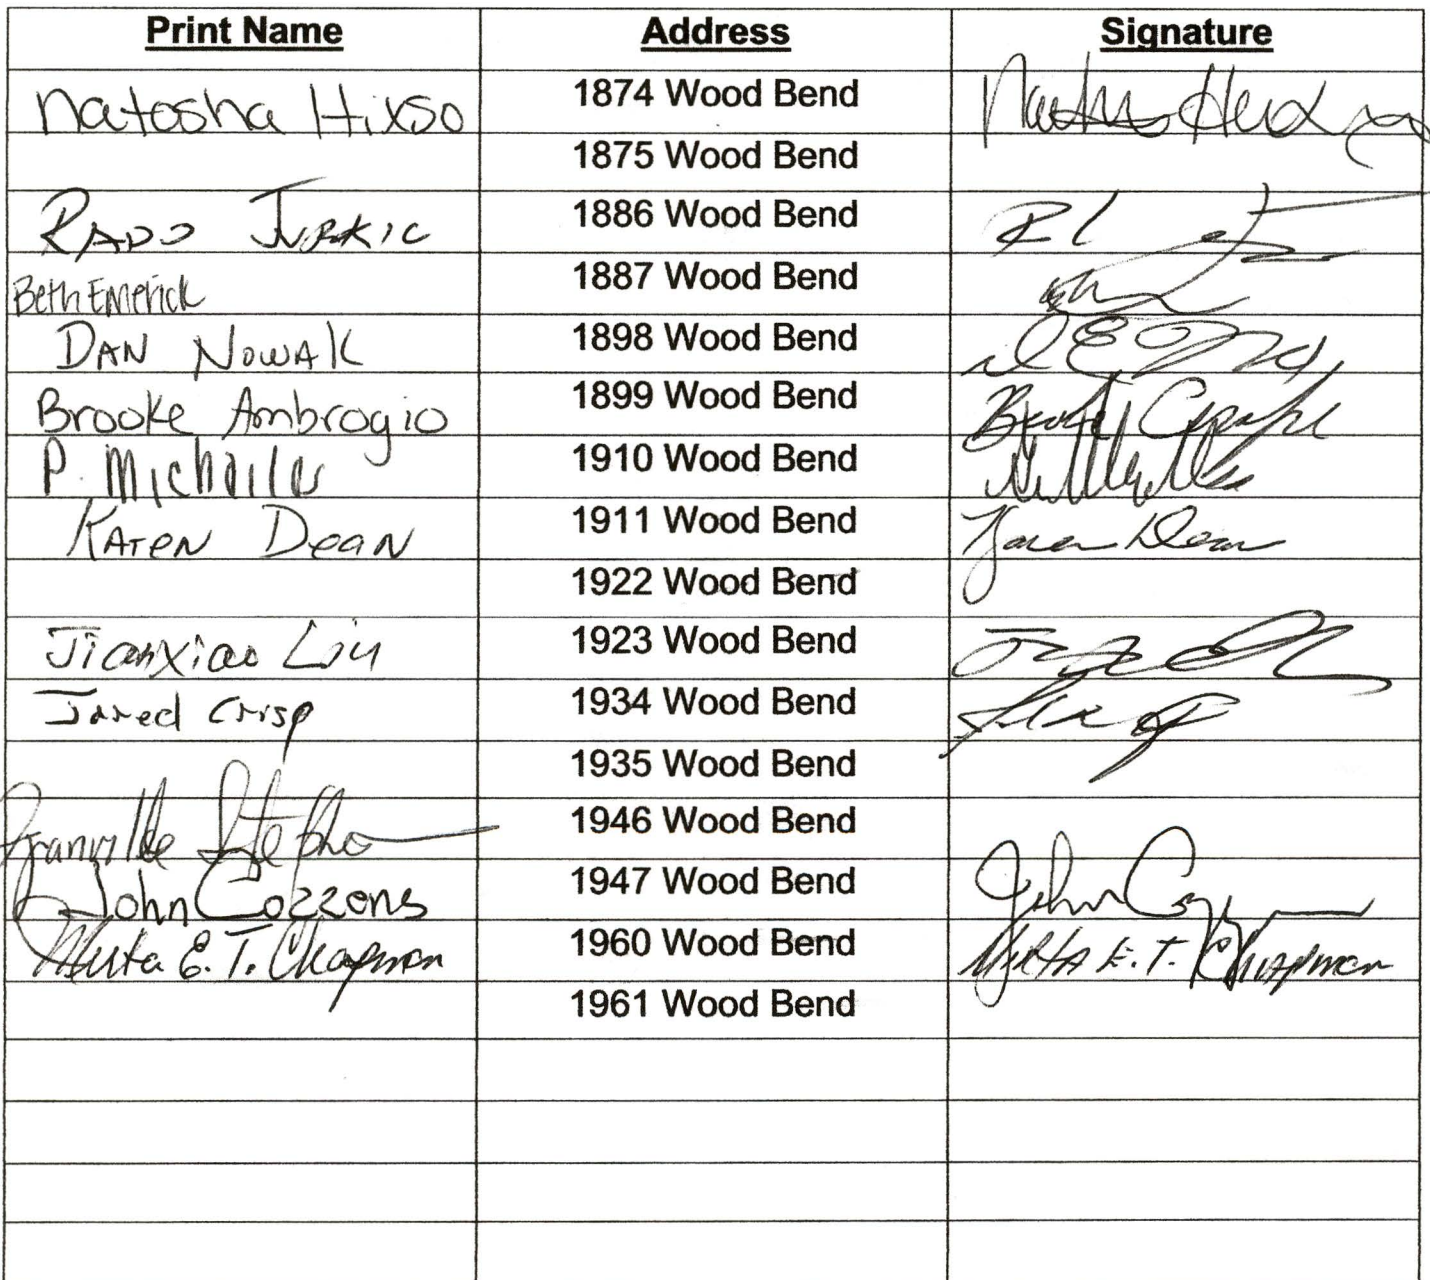 Print Name Address Signature
Natosha Hixso 1874 Wood Bend
1875 Wood Bend
RADO JURKIC 1886 Wood Bend
Beth Emerick 1887 Wood Bend
DAN NOWAK 1898 Wood Bend
Brooke Ambrogio 1899 Wood Bend
P. 1910 Wood Bend
KAREN DEAN 1911 Wood Bend Karen Dean
1922 Wood Bend
Jianxiao Liu 1923 Wood Bend
Jared Crisp 1934 Wood Bend
1935 Wood Bend
Granville 1946 Wood Bend
John Cozzens 1947 Wood Bend John
E. T. Chapman 1960 Wood Bend E. T. Chapman
1961 Wood Bend